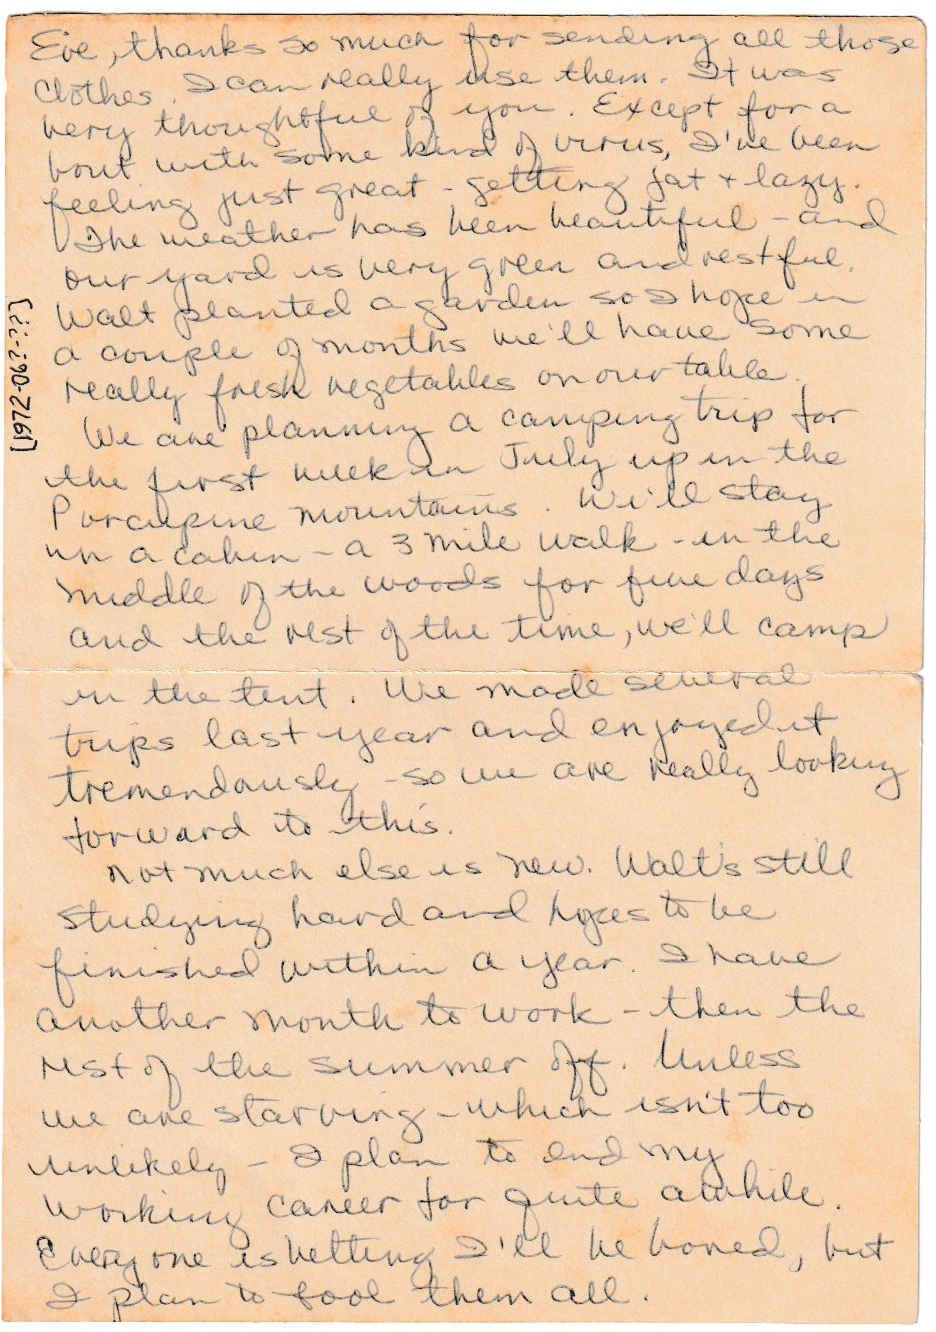 Eve, thanks so much for sending all those
clothes. I can really use them. It was
very thoughtful of you. Except for a
bout with some kind of virus, I've been
feeling just great - getting fat + lazy.
The weather has been beautiful - and
our yard is very green and restful.
Walt planted a garden so I hope in
a couple of months we'll have some
really fresh vegetables on our table.
We are planning a camping trip for
the first week in July up in the
Porcupine mountains. We'll stay
in a cabin - a 3 mile walk - in the
middle of the woods for five days
and the rest of the time, we'll camp
in the tent. We made several
trips last year and enjoyed it
tremendously - so we are really looking
forward to this.
Not much else is new. Walt's still
studying hard and hopes to be
finished within a year. I have
another month to work - then the
rest of the summer off. Unless
we are starving - which isn't too
unlikely - I plan to end my
working career for quite awhile.
Everyone is betting I'll be bored, but
I plan to fool them all.
[1972-06?-???]